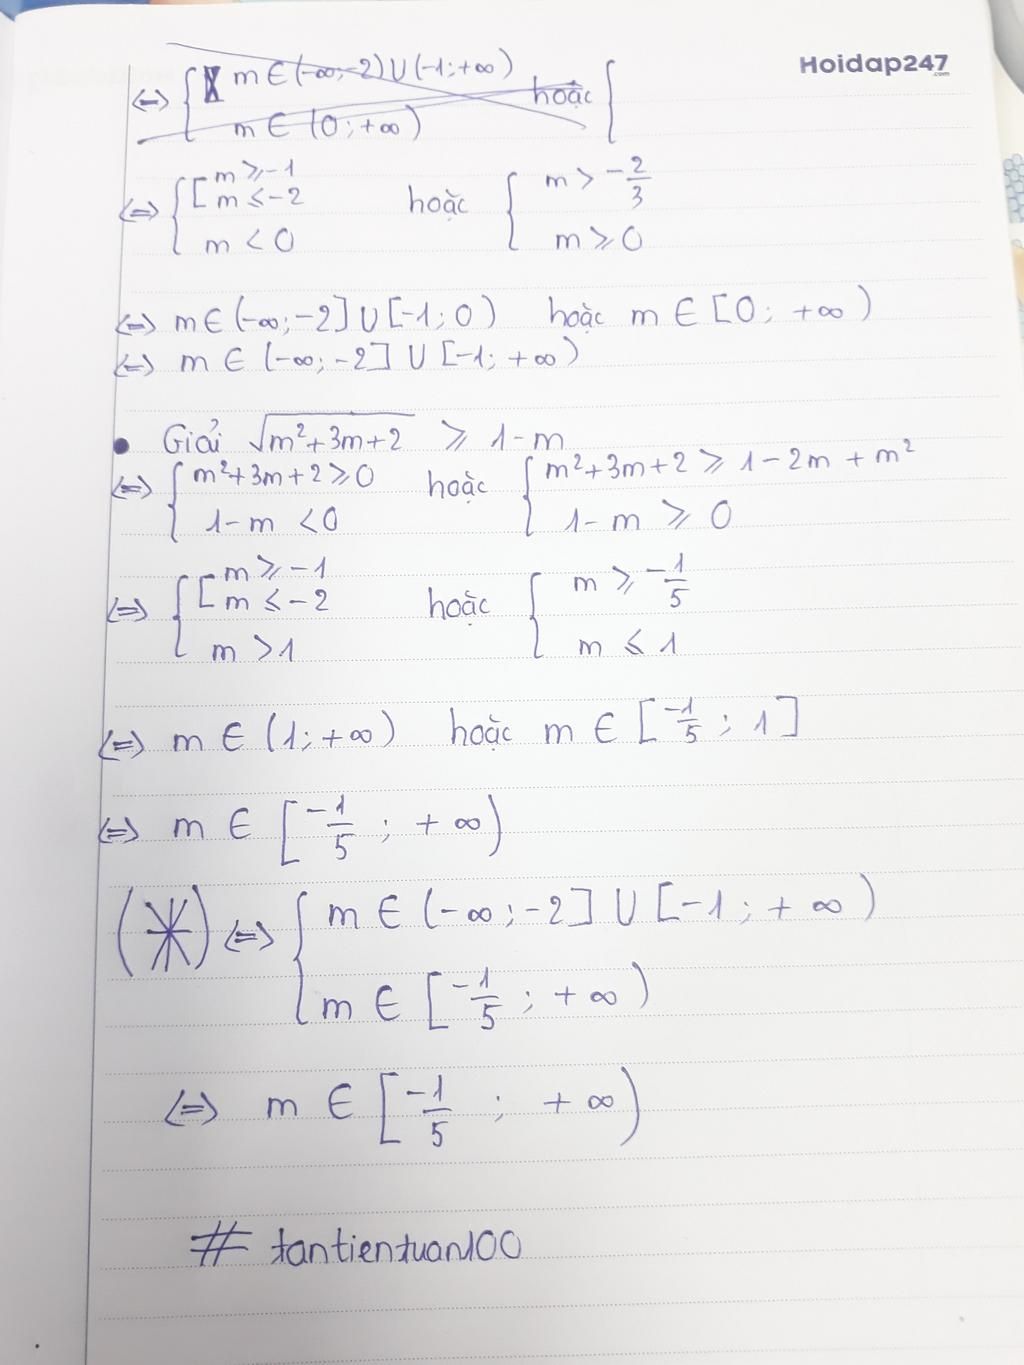 Hoidap247.com
⇔ { m ∈ (-∞;-2) ∪ (-1;+∞) hoặc {
m ∈ (0;+∞)
⇔ { [ m ⩾ -1 hoặc { m > -2/3
m ⩽ -2
m < 0 m ⩾ 0
⇔ m ∈ (-∞;-2] ∪ [-1;0) hoặc m ∈ [0; +∞)
⇔ m ∈ (-∞;-2] ∪ [-1; +∞)
• Giải √(m²+3m+2) ⩾ 1-m
⇔ { m²+3m+2 ⩾ 0 hoặc { m²+3m+2 ⩾ 1-2m+m²
1-m < 0 1-m ⩾ 0
⇔ { [ m ⩾ -1 hoặc { m ⩾ -1/5
m ⩽ -2
m > 1 m ⩽ 1
⇔ m ∈ (1;+∞) hoặc m ∈ [-1/5; 1]
⇔ m ∈ [-1/5; +∞)
(*) ⇔ { m ∈ (-∞;-2] ∪ [-1; +∞)
m ∈ [-1/5; +∞)
⇔ m ∈ [-1/5; +∞)
# tantientuan100